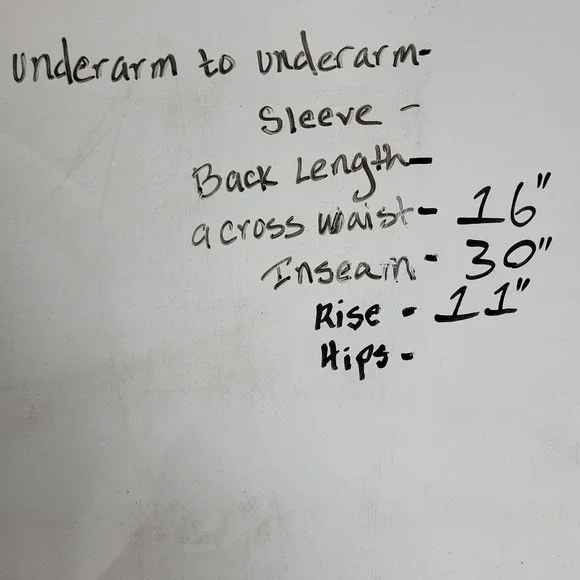 underarm to underarm-
Sleeve -
Back Length-
across waist- 16"
Inseam - 30"
Rise - 11"
Hips -